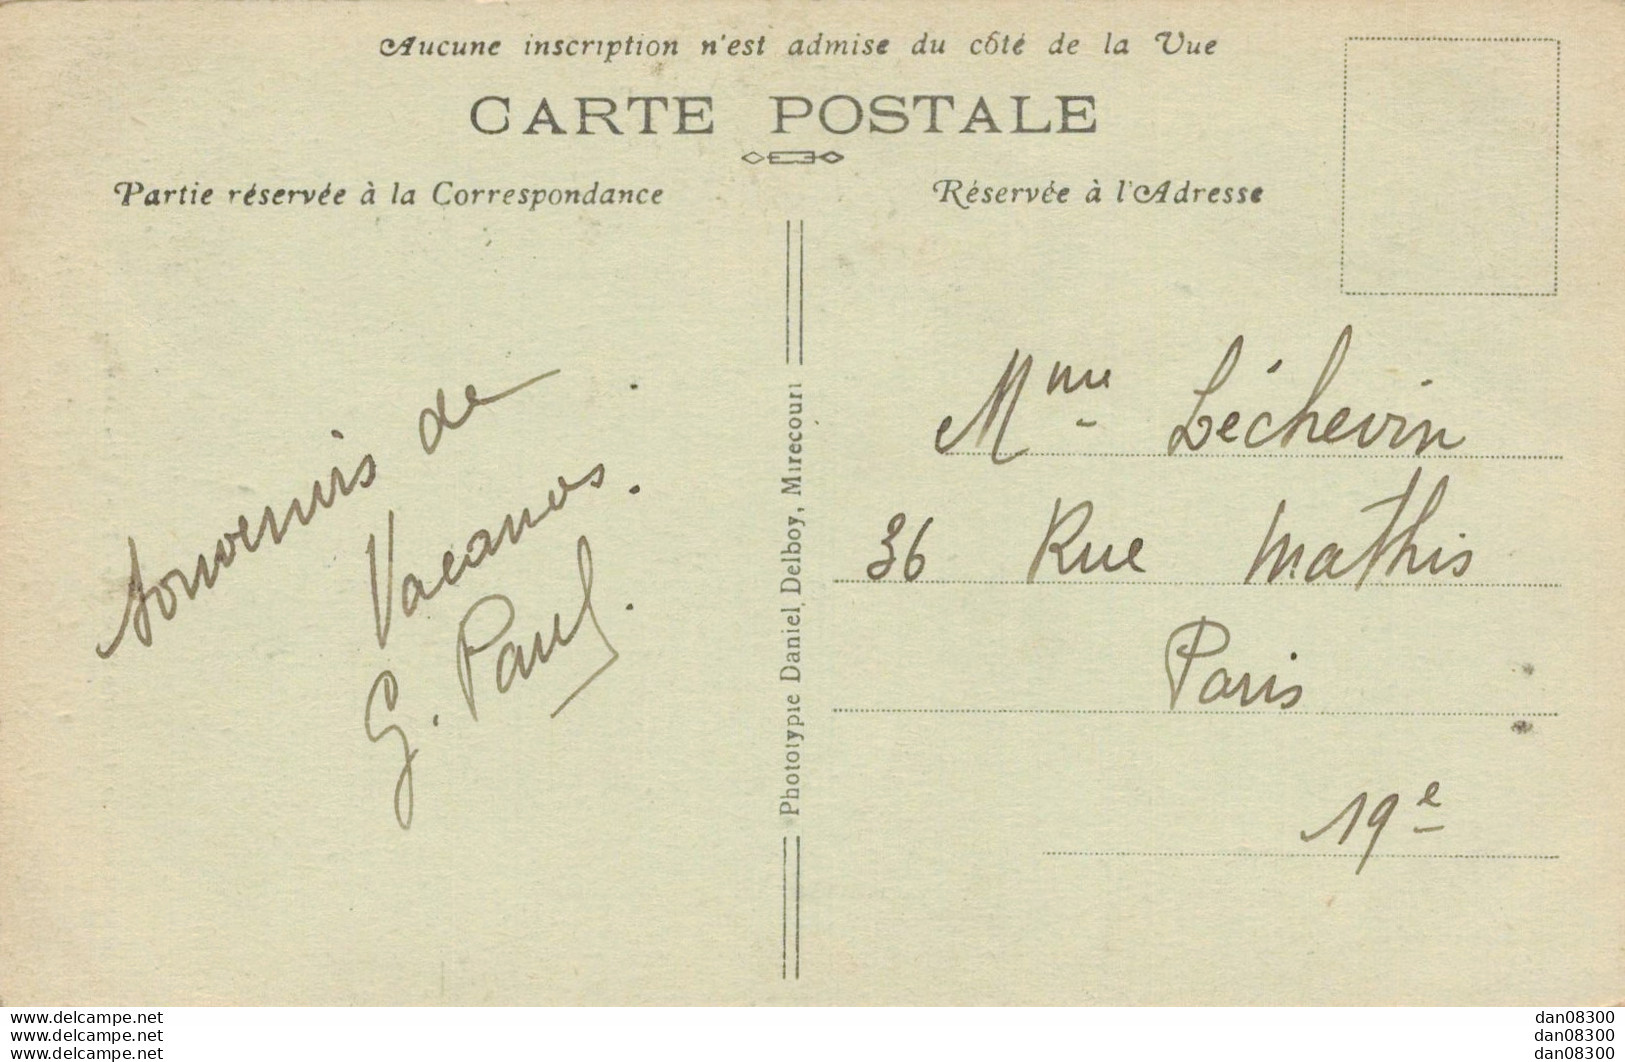 Aucune inscription n'est admise du côté de la Vue
CARTE POSTALE
Partie réservée à la Correspondance
Réservée à l'Adresse
Souvenirs de
Vacances.
G. Paul.
Phototypie Daniel Delboy, Mirecourt
Mme Léchevin
36 Rue Mathis
Paris
19e
www.delcampe.net
www.delcampe.net
www.delcampe.net
dan08300
dan08300
dan08300